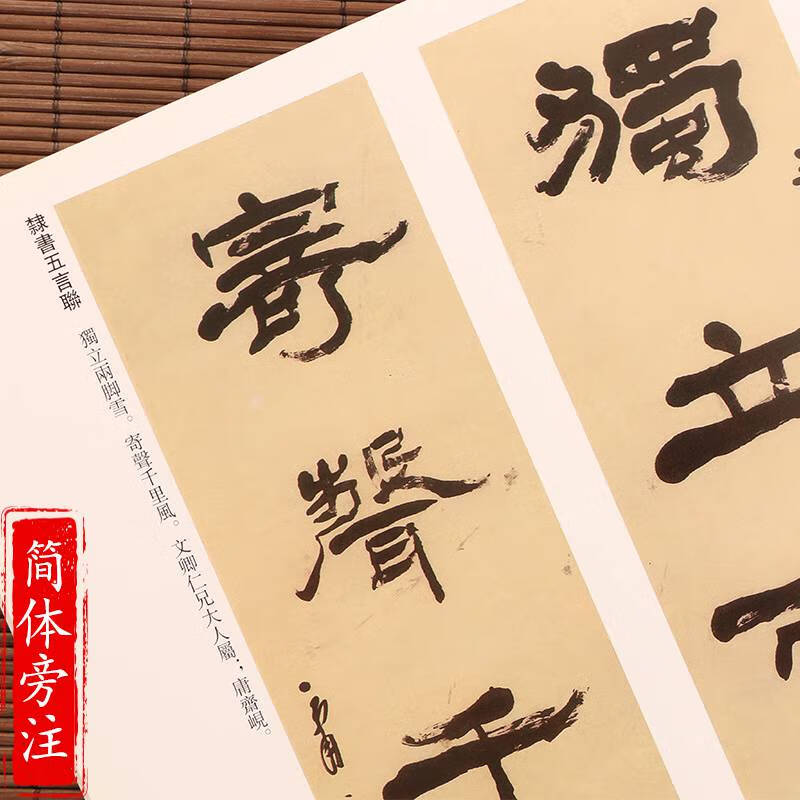 獨立
寄聲千
隸書五言聯
獨立兩脚雪。寄聲千里風。文卿仁兄大人屬；庸齋峴。
简体旁注